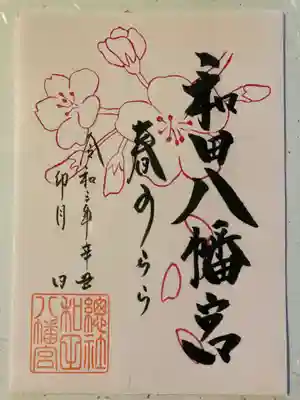 和田八幡宮
春のうらら
令和三年辛丑
卯月
日
總社
和田
八幡宮